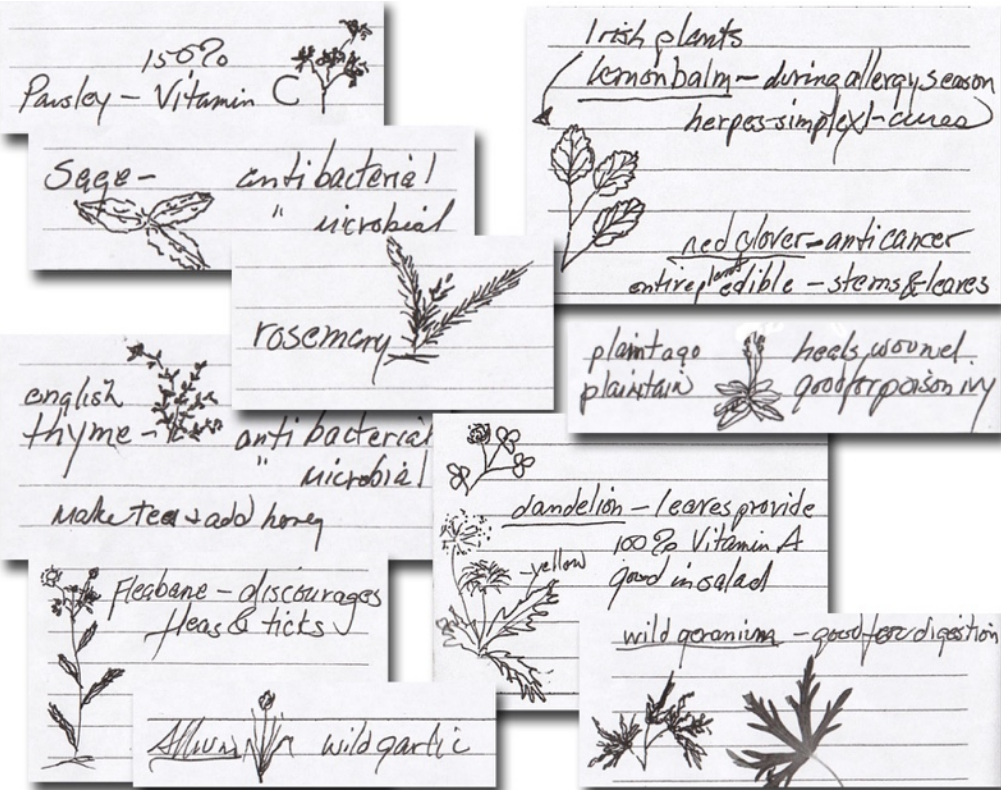 150%
Parsley - Vitamin C
Sage - antibacterial
" microbial
rosemary
english
thyme - antibacterial
" microbial
Make tea & add honey
Fleabane - discourages
fleas & ticks
Allium wild garlic
Irish plants
lemonbalm - during allergy season
herpes-simplex1-cures
red clover - anticancer
entire plant edible - stems & leaves
plaintago heals wound
plaintain good for poison ivy
dandelion - leaves provide
100% Vitamin A
- yellow
good in salad
wild geranium - good for digestion